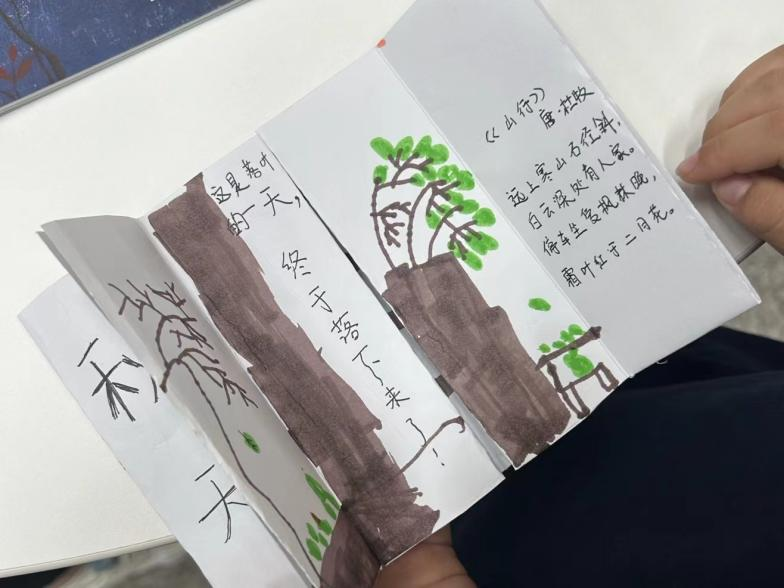 秋天
这是落叶
的一天，
终于落下来了！
《山行》
唐·杜牧
远上寒山石径斜，
白云深处有人家。
停车坐爱枫林晚，
霜叶红于二月花。